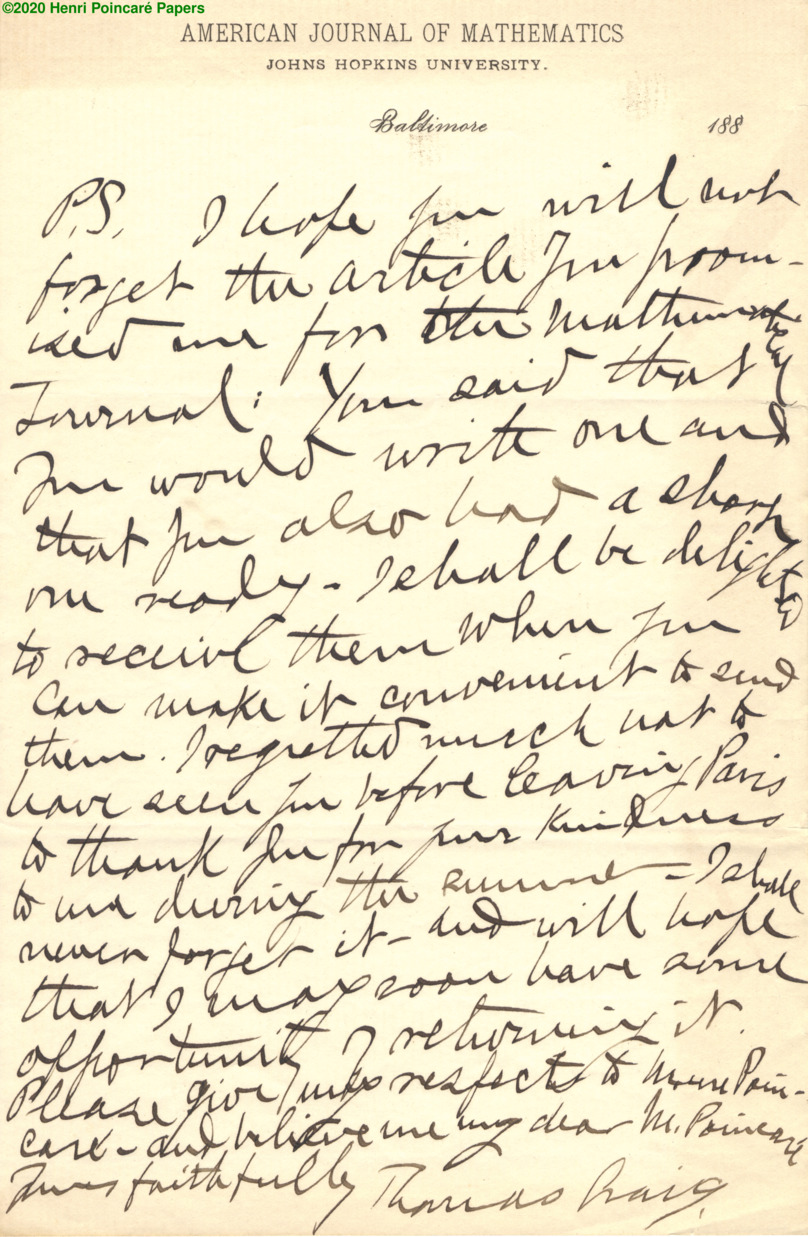 ©2020 Henri Poincaré Papers
AMERICAN JOURNAL OF MATHEMATICS
JOHNS HOPKINS UNIVERSITY.
Baltimore 188
P.S. I hope you will not
forget the article you prom-
ised me for the Mathematical
Journal: You said that
you would write one and
that you also had a short
one ready - I shall be delighted
to receive them when you
can make it convenient to send
them. I regretted much not to
have seen you before leaving Paris
to thank you for your kindness
to me during the summer - I shall
never forget it - and will hope
that I may soon have some
opportunity of returning it.
Please give my respects to Mme Poin-
caré - and believe me my dear M. Poincaré
Yours faithfully Thomas Craig.